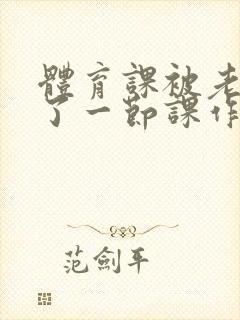 體育課被老
了一節課作
范劍平